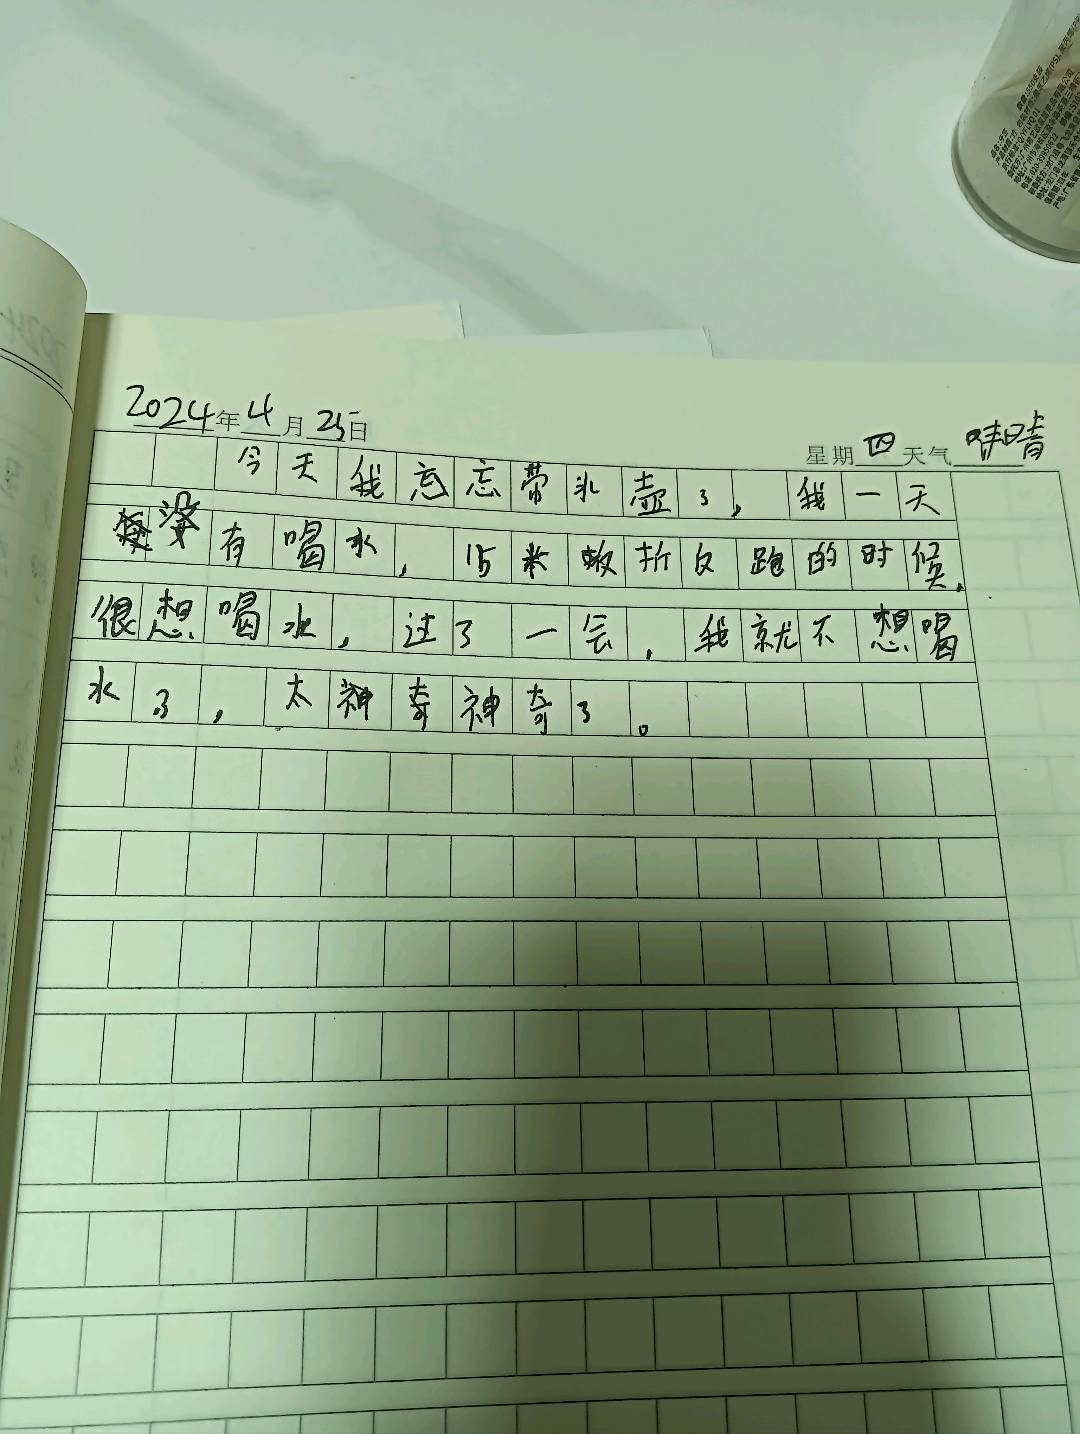 2024年4月25日
星期四天气晴
今天我忘忘带水壶了，我一天
没有喝水，15米折反跑的时候，
很想喝水，过了一会，我就不想喝
水了，太神奇神奇了。